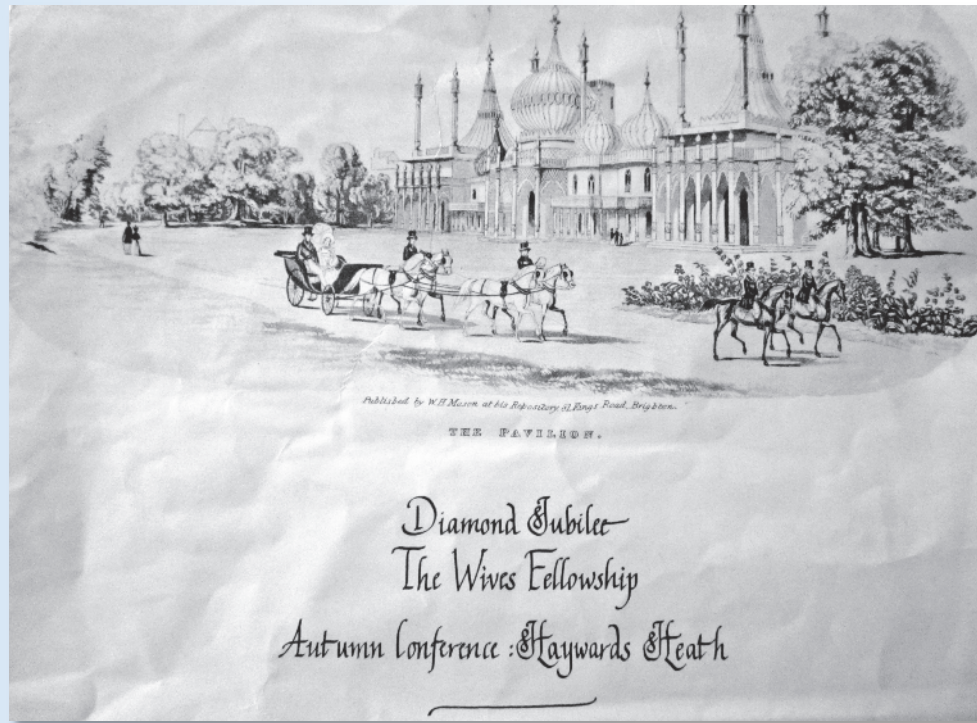 Published by W.H Mason at his Repository 81 Kings Road Brighton.
THE PAVILION.
Diamond Jubilee
The Wives Fellowship
Autumn Conference : Haywards Heath